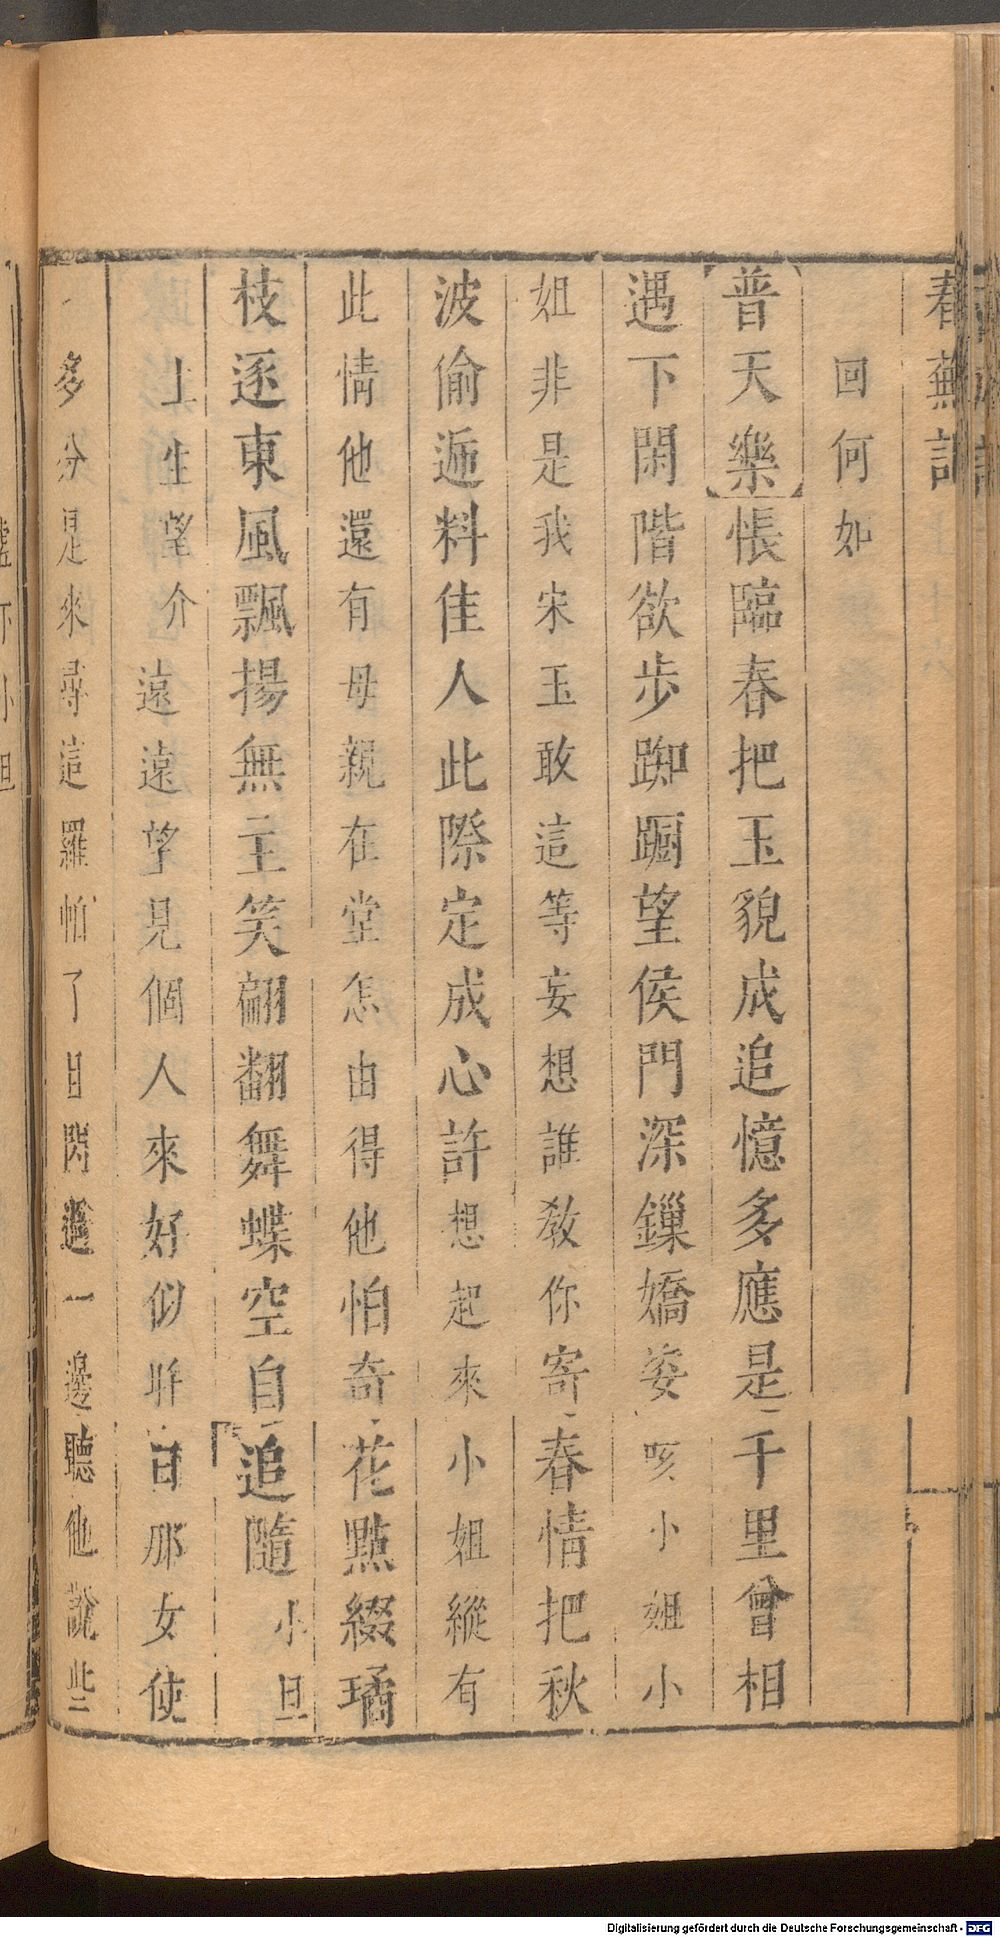 春蕪記
回何如
普天樂悵臨春把玉貌成追憶多應是千里曾相
遇下閑階欲步踟躕望侯門深鏁嬌姿咳小姐小
姐非是我宋玉敢這等妄想誰教你寄春情把秋
波偷逓料佳人此際定成心許想起來小姐縱有
此情他還有母親在堂怎由得他怕奇花點綴璚
枝逐東風飄揚無主笑翩翻舞蝶空自追隨小旦
上生望介遠遠望見個人來好似昨日那女使
多分是來尋這羅帕了且閃過一邊聽他說些
Digitalisierung gefördert durch die Deutsche Forschungsgemeinschaft - DFG